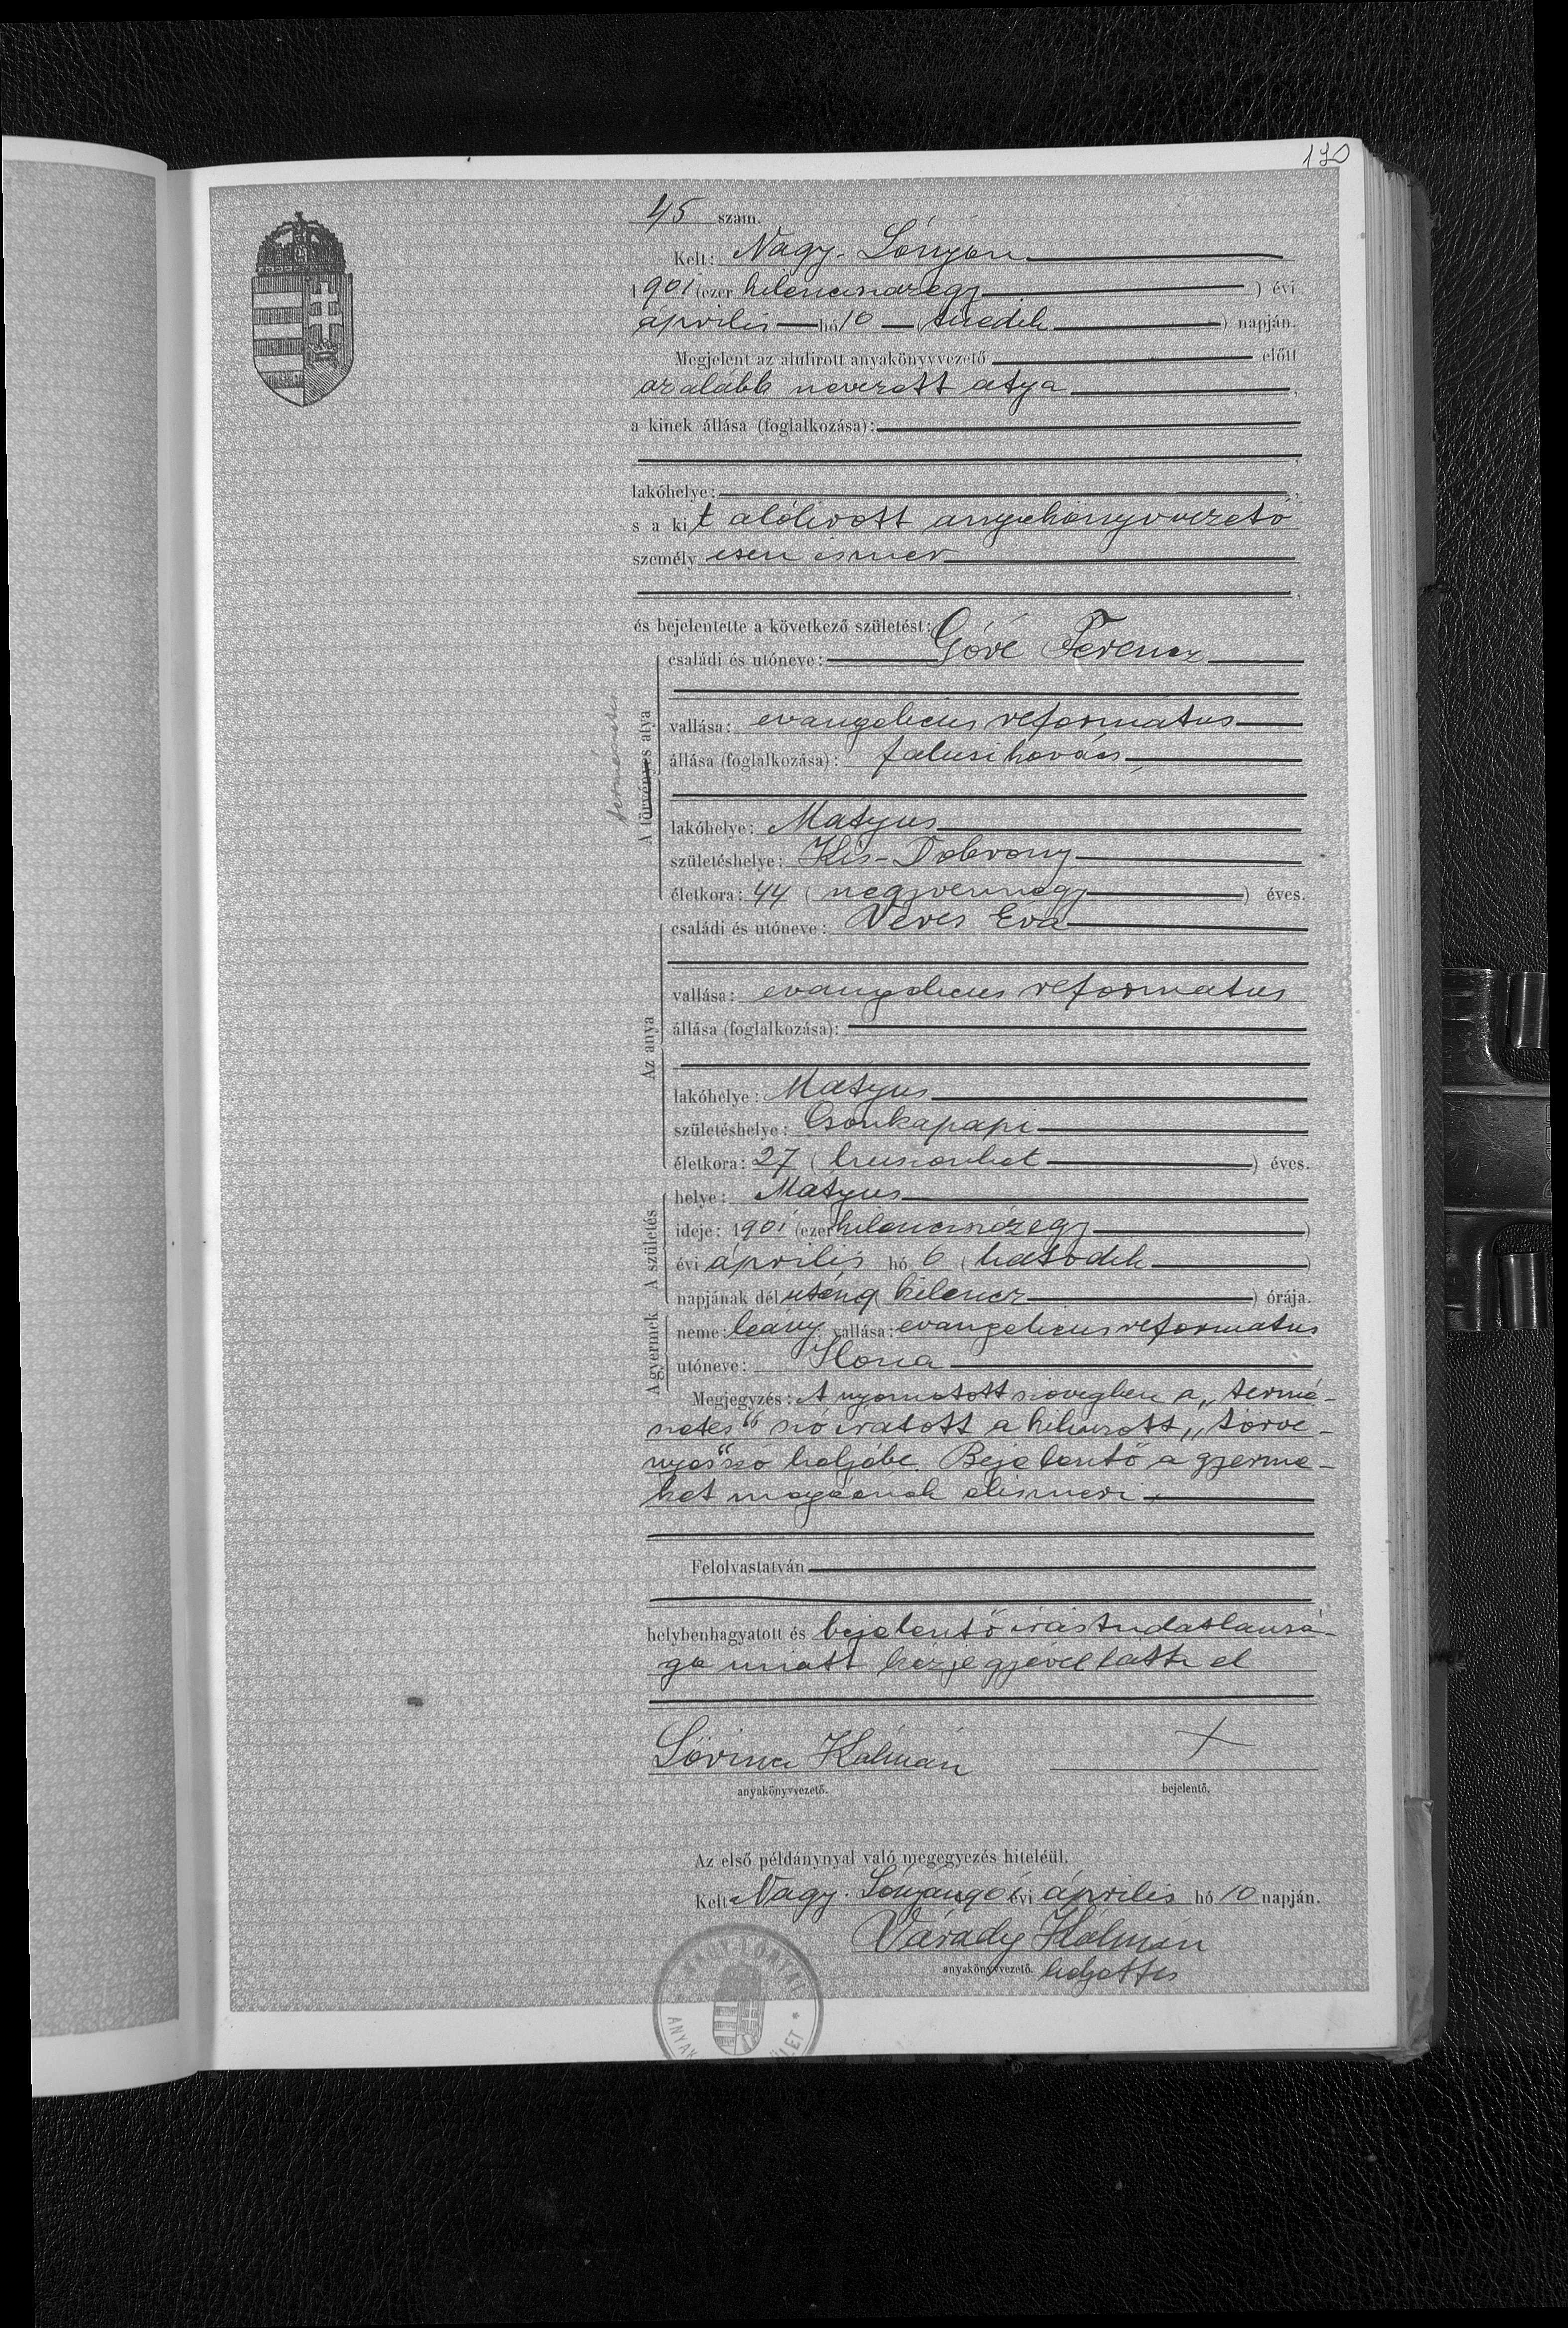 130
45 szám.
Kelt: Nagy-Lónyán
1901 (ezer kilenczszázegy) évi
április hó 10 (tizedik) napján.
Megjelent az alulirott anyakönyvvezető előtt
az alább nevezett atya,
a kinek állása (foglalkozása):
lakóhelye:
s a kit alólirott anyakönyvvezető
személyesen ismer
és bejelentette a következő születést:
A törvényes atya
természetes
családi és utóneve: Góré Ferencz
vallása: evangelicus református
állása (foglalkozása): falusi kovács,
lakóhelye: Matyus
születéshelye: Kis-Dobrony
életkora: 44 (negyvennégy) éves.
Az anya
családi és utóneve: Veres Éva
vallása: evangelicus reformatus
állása (foglalkozása):
lakóhelye: Matyus
születéshelye: Csonkapapi
életkora: 27 (huszonhet) éves.
A születés
helye: Matyus
ideje: 1901 (ezer kilenczszázegy)
évi április hó 6 (hatodik)
napjának délutáni 9 (kilencz) órája.
A gyermek
neme: leány vallása: evangelicus reformatus
utóneve: Ilona
Megjegyzés: A nyomatott szövegben a „termé-
szetes" szó iratott a kihuzott „törvé-
nyes" szó helyébe. Bejelentő a gyerme-
ket magáénak elismeri.
Felolvastatván
helybenhagyatott és bejelentő irástudatlansá-
ga miatt kézjegyével látta el
Lőrincz Kálmán
anyakönyvvezető.
+
bejelentő.
Az első példánynyal való megegyezés hiteléül.
Kelt Nagy-Lónyán 901 évi április hó 10 napján.
Várady Kálmán
anyakönyvvezető. helyettes
NAGY-LÓNYAI
ANYAK